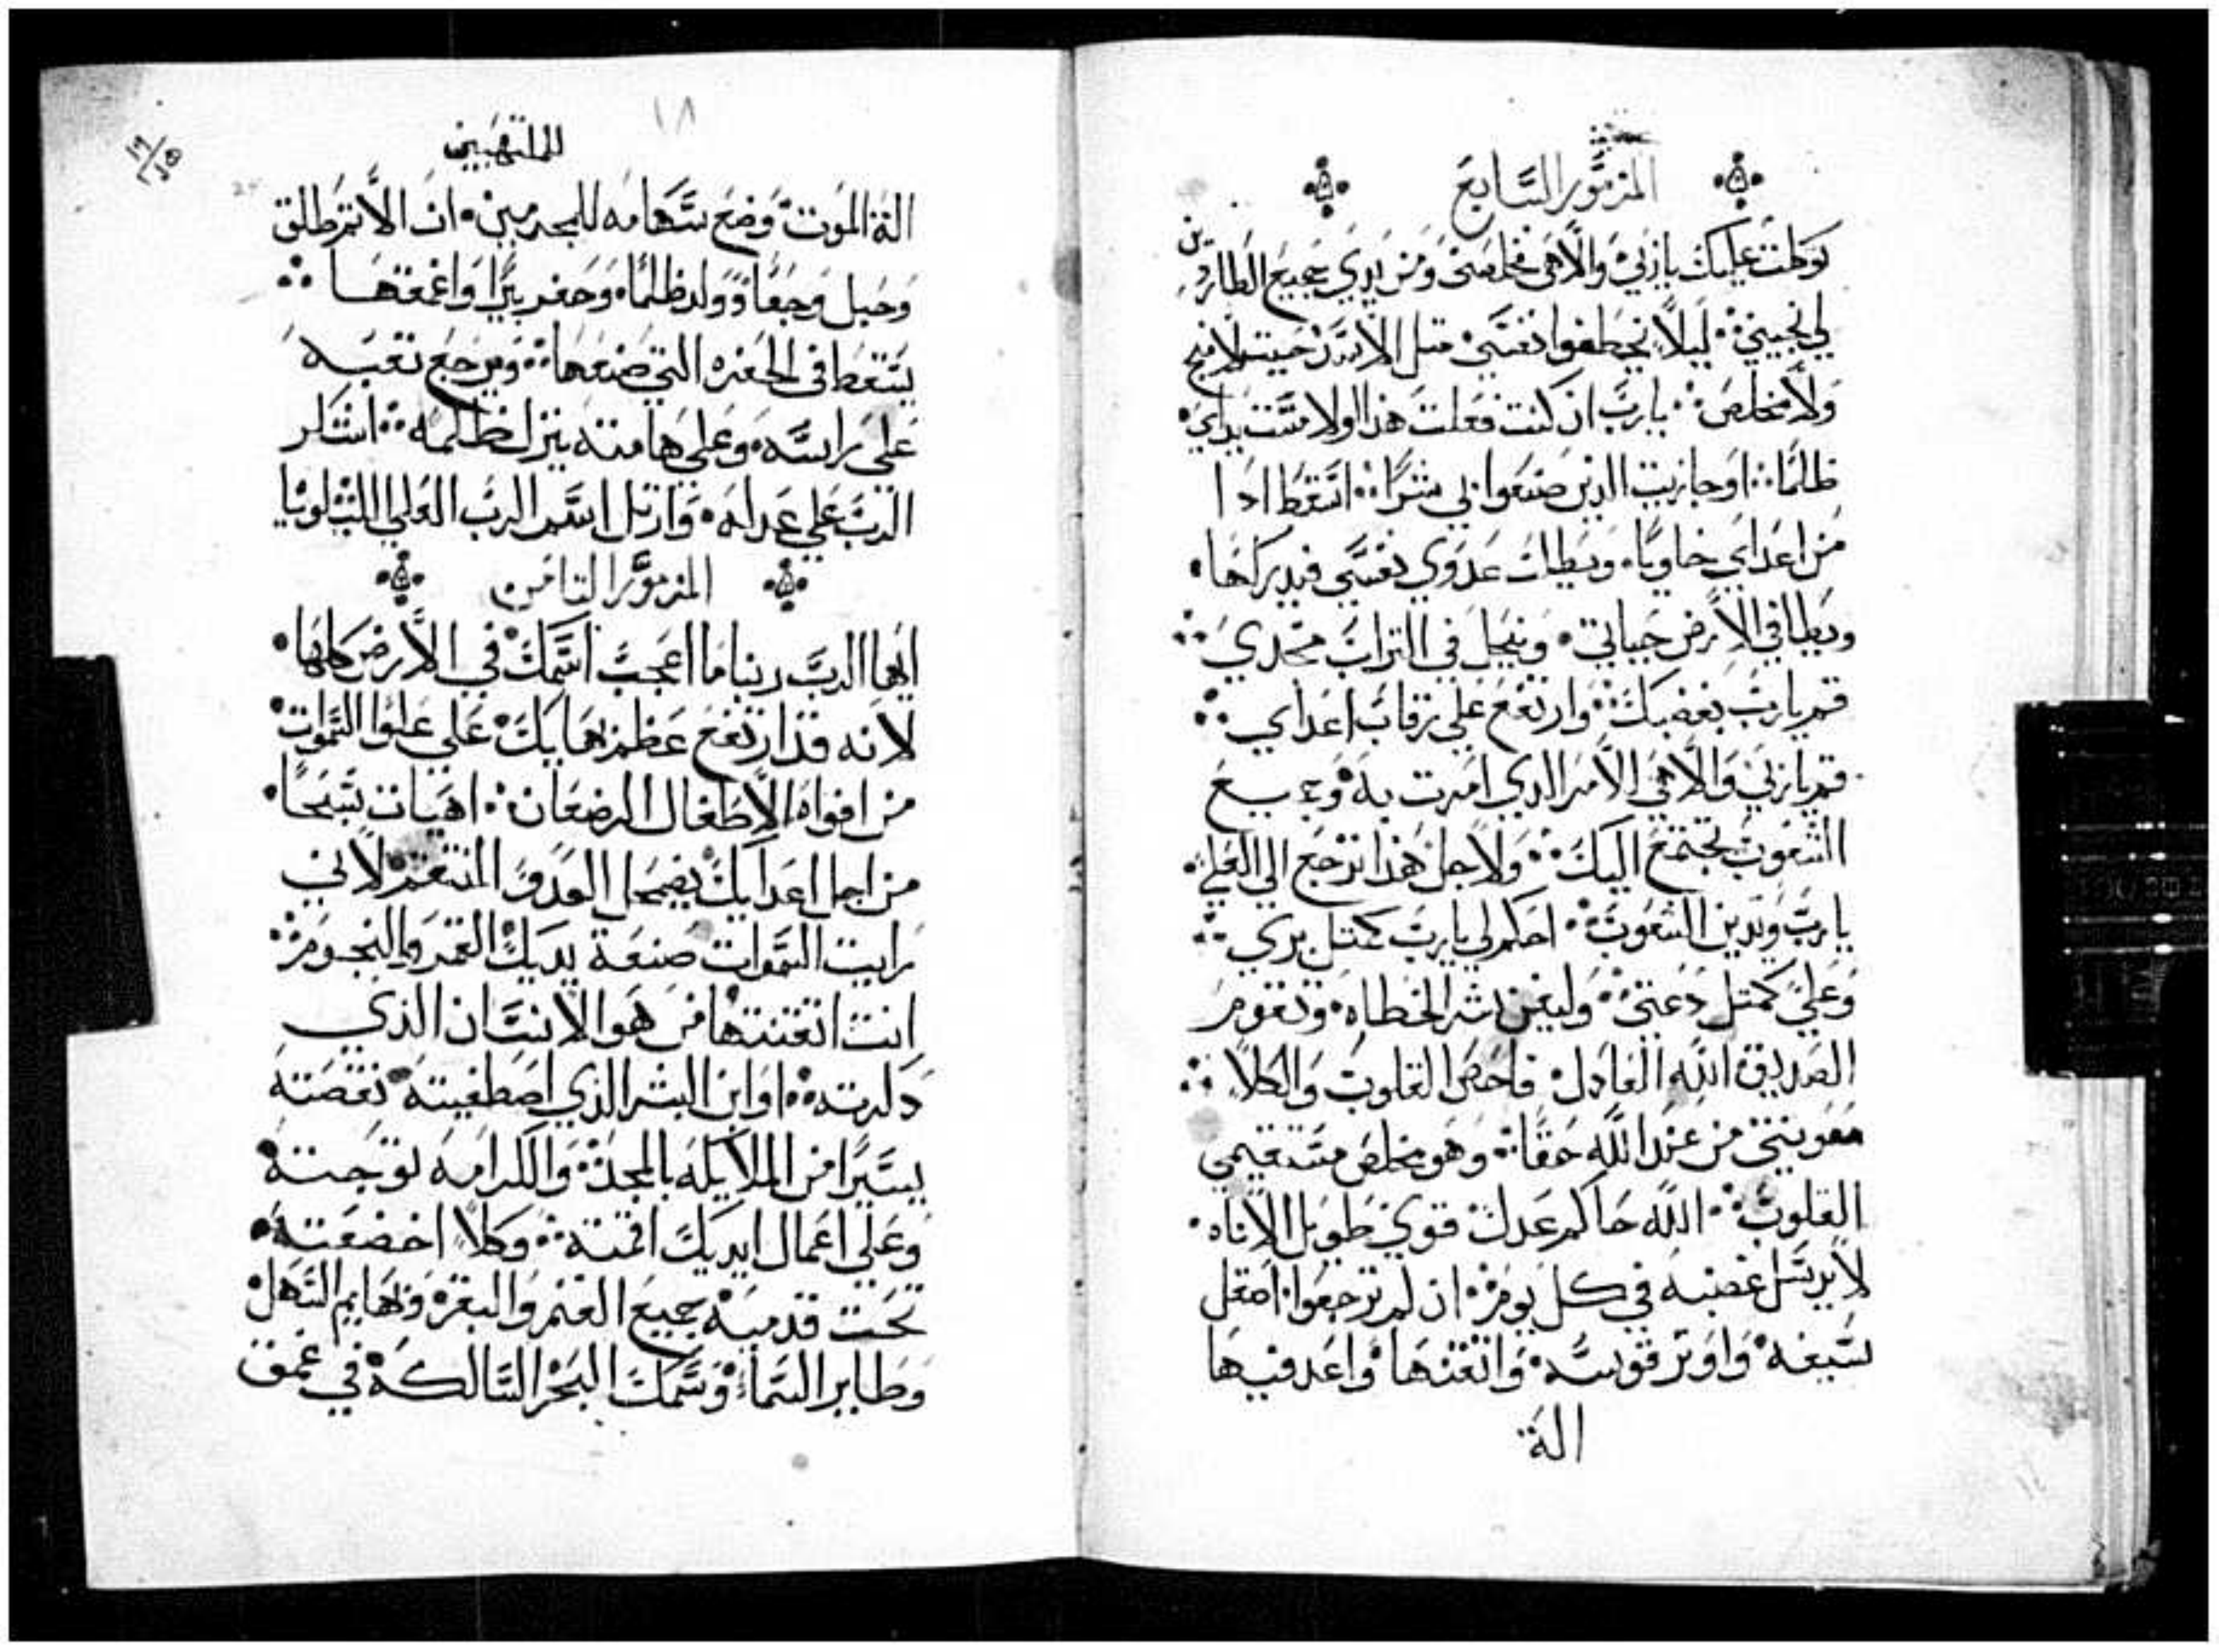 المزمور السابع
توكلت عليك يا ربي والاهي فخلصني ومن يدي جميع الطاردين
لي نجيني ليلا يخطفوا نفسي متل الاسد حيت لا منج
ولا مخلص يا رب ان كنت فعلت هذا اولا مست يداي
ظلمًا او جازيت الدين صنعوا بي شرًا اسقط ادا
من اعداي خاويًا ويطلب عدوي نفسي فيدركها
ويطا في الارض حياتي وينحل في التراب مجدي
قم يا رب بغضبك وارتفع علي رقاب اعداي
قم يا ربي والاهي الامر الدي امرت به وجميع
الشعوب تجتمع اليك ولاجل هذا ترجع الي العلي
يا رب وتدين الشعوب احكم لي يا رب كمتل بري
وعلي كمتل دعتي وليفن شر الخطاه وتقوم
الصديق الله العادل فاحص القلوب والكلا
معونتي من عند الله حقًا وهو مخلص مستقيمي
القلوب الله حاكم عدل قوي طويل الاناه
لا يرسل غضبه في كل يوم ان لم ترجعوا اصقل
سيفه واوتر قوسه واتقنها واعد فيها
الة
١٨
الملتهبين
الة الموت وضع سهامه للمجرمين ان الاتم طلق
وحبل وجعًا وولد ظلمًا وحفر بيرًا واعمقها
يسقط في الحفره التي صنعها ويرجع تعبه
علي راسه وعلي هامته ينزل ظلمه اشكر
الرب علي عدله وارتل اسم الرب العلي الليلويا
المزمور التامن
ايها الرب ربنا ما اعجب اسمك في الارض كلها
لانه قد ارتفع عظم بهايك علي علو السموات
من افواه الاطفال الرضعان اهيات سبحًا
من اجل اعدايك يضمحل العدو المنتقم لاني
رايت السموات صنعة يديك القمر والنجوم
انت اتقنتها من هو الانسان الذي
دكرته او ابن البشر الذي اصطفيته نقصته
يسيرًا من الملايكه بالمجد والكرامه توجته
وعلي اعمال ايديك اقمته وكلا اخضعته
تحت قدميه جميع الغنم والبقر وبهايم السهل
وطاير السما وسمك البحر السالكه في عمق